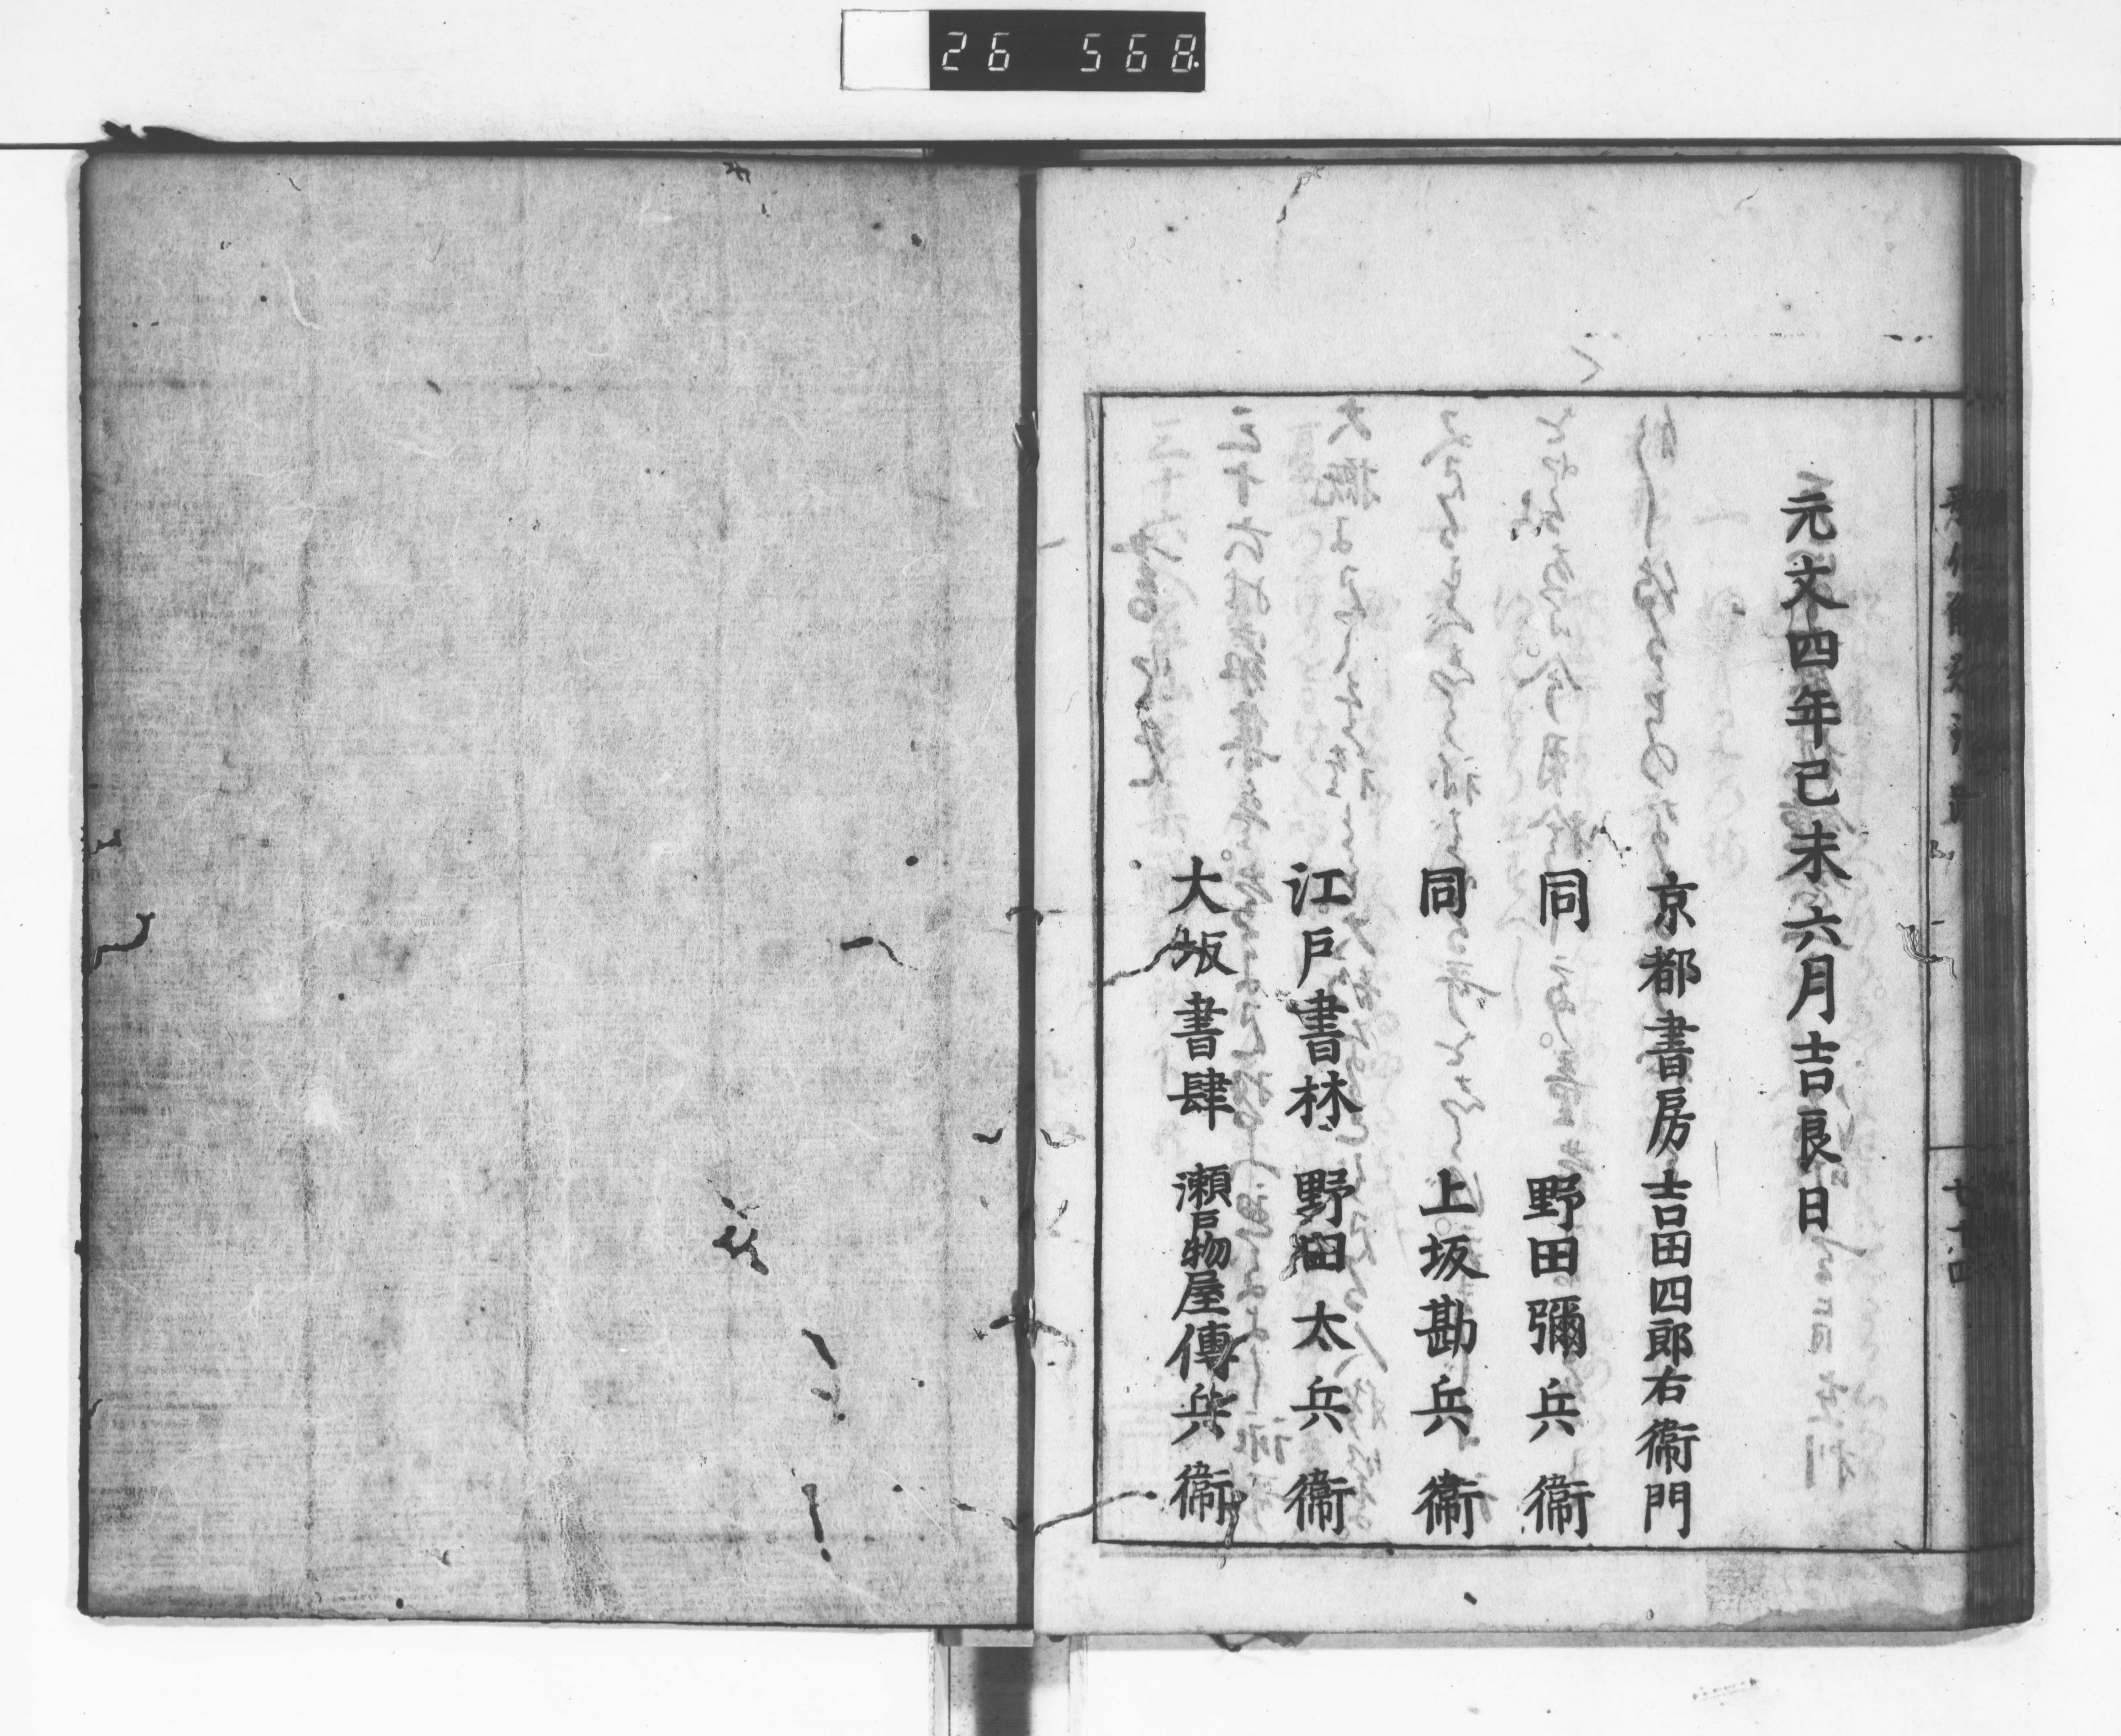 26 568
元文四年己未六月吉良日
京都書房吉田四郎右衞門
同 野田彌兵衞
同 上坂勘兵衞
江戸書林 野田太兵衞
大坂書肆 瀬戸物屋傳兵衞